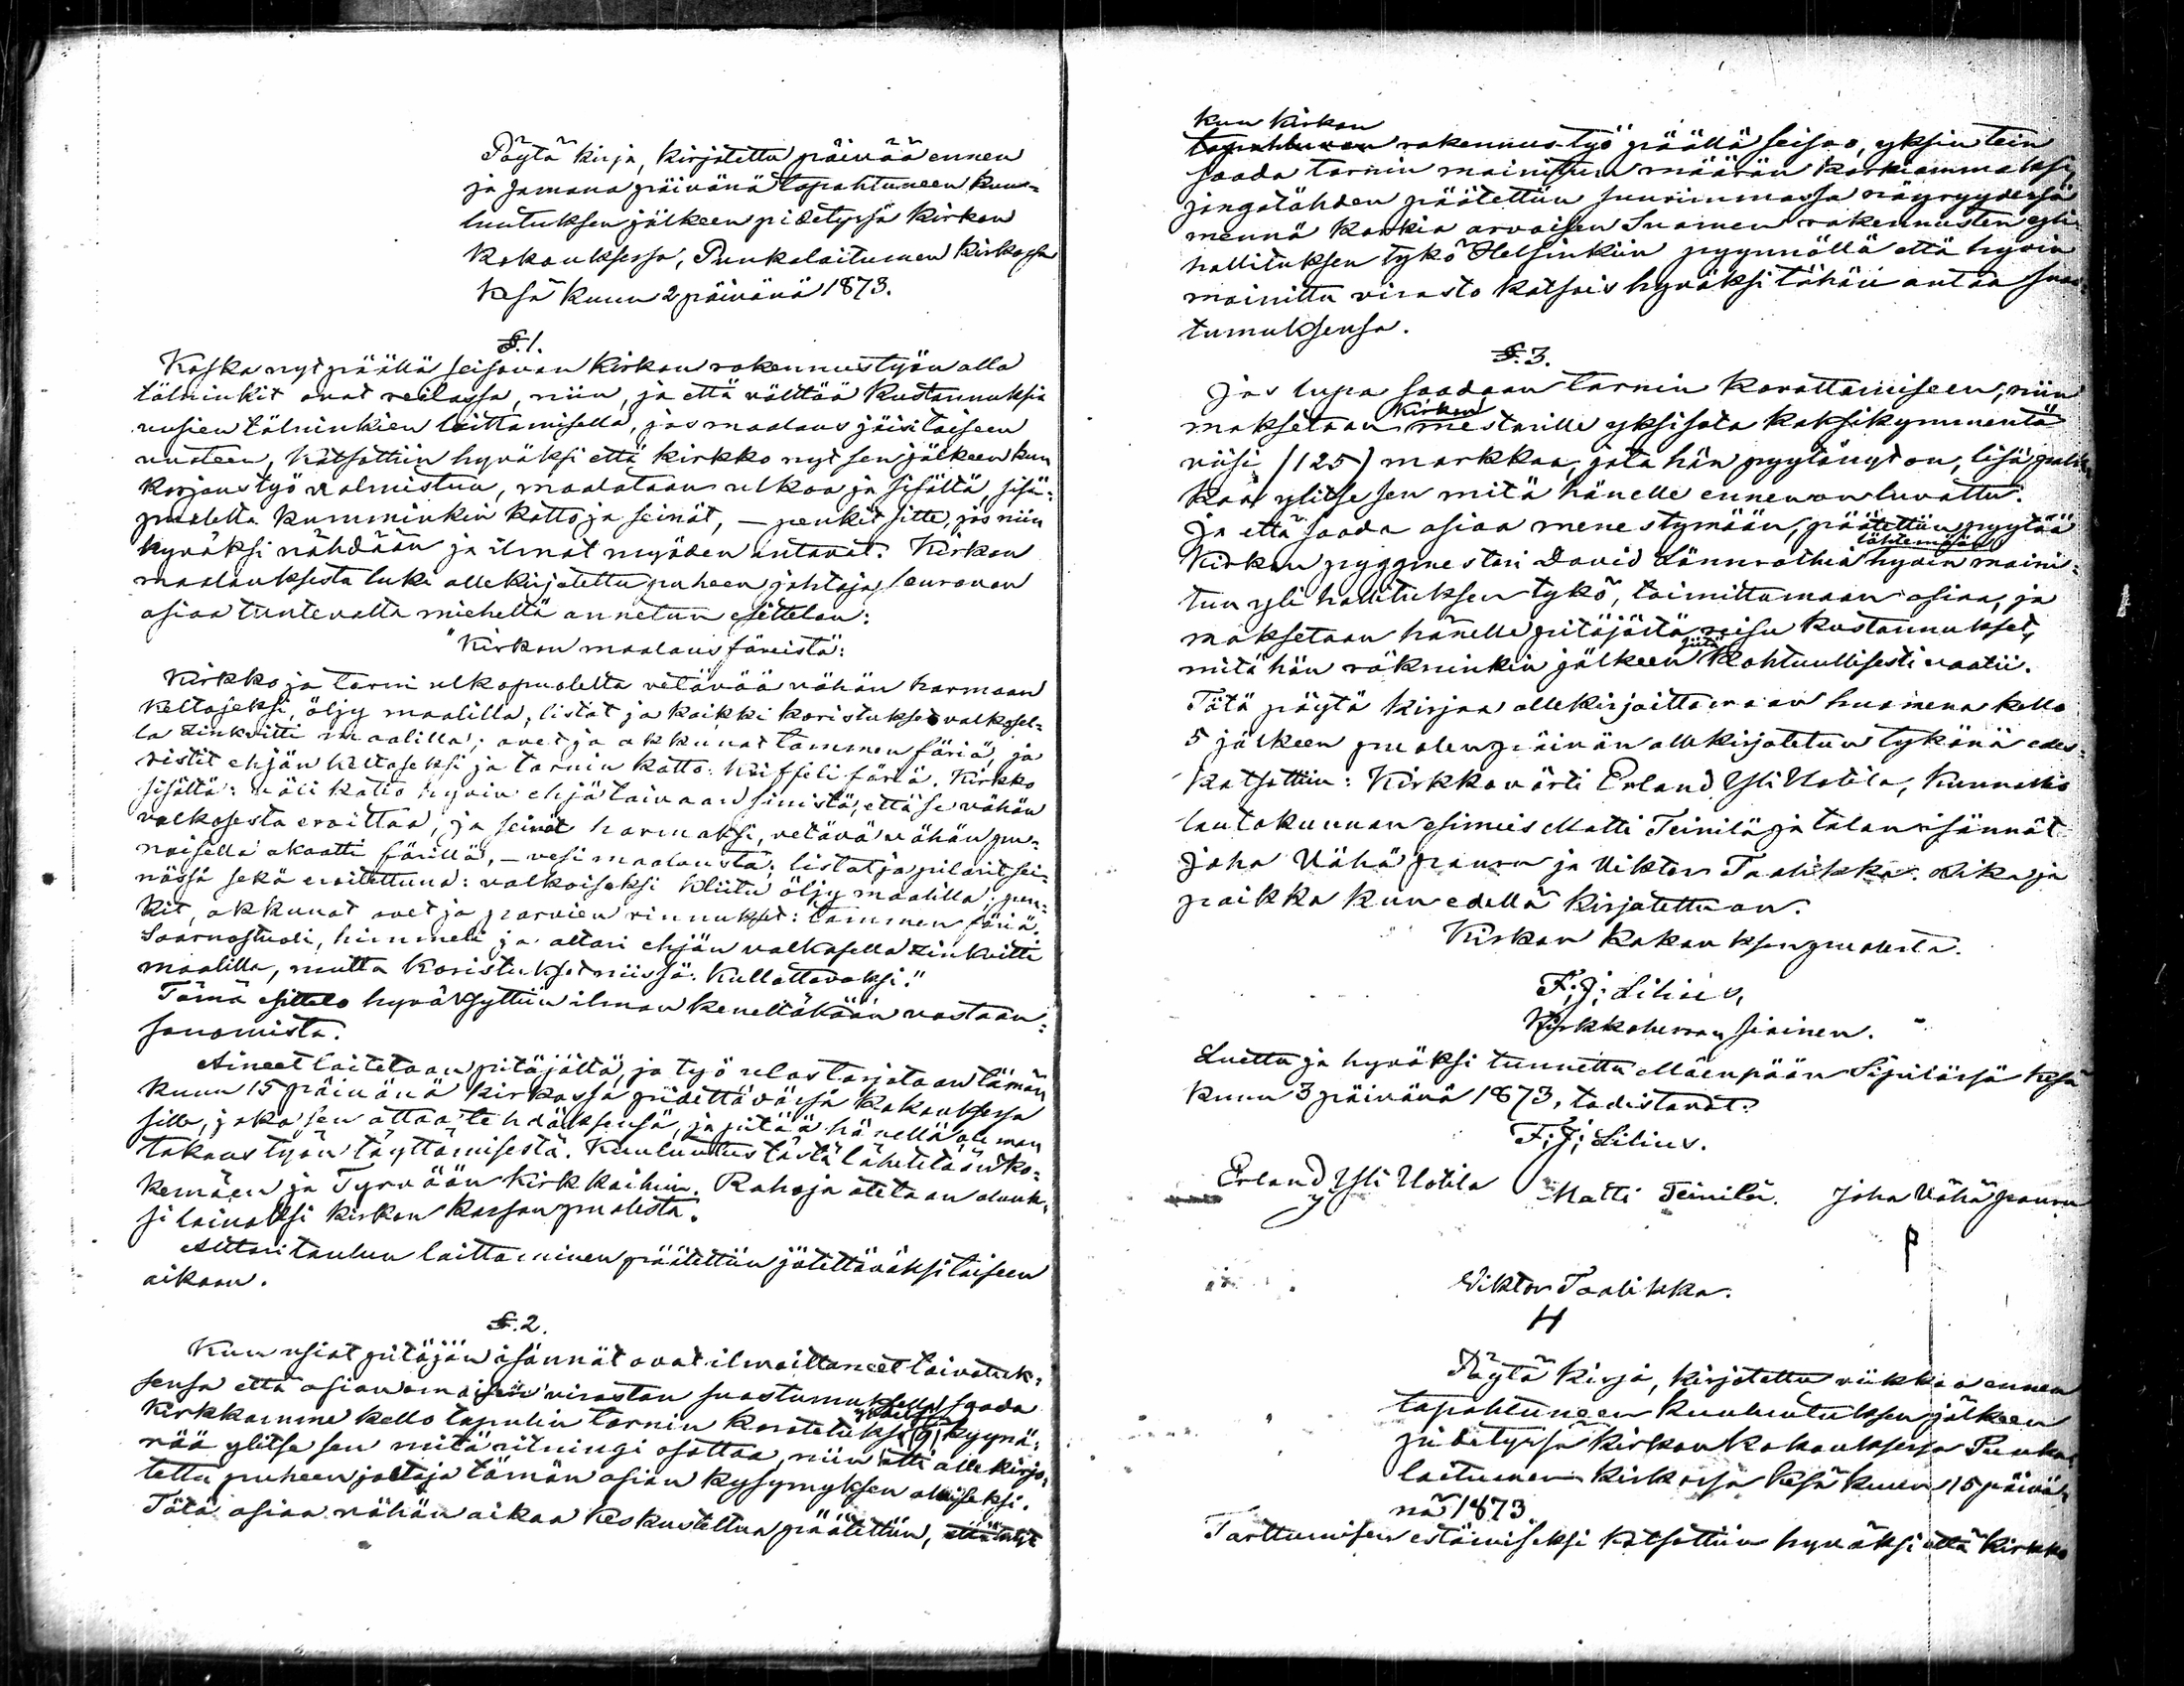 Pöytä kirja, kirjotettu päivää ennen
ja samana päivänä tapahtuneen kuu-
luutuksen jälkeen pidetyssä kirkon
kokouksessa, Punkalaitumen kirkossa
Kesä kuun 2 päivänä 1873.
§.1.
Koska nyt päällä seisovan kirkon rakennustyön alla
tälninkit ovat reilassa, niin, ja että välttää kustannuksia
uusien tälninkien laittamisella, jos maalaus jäisi toiseen
vuoteen, katsottiin hyväksi että kirkko nyt sen jälkeen kun
korjaustyö valmistuu, maalataan ulkoa ja sisältä, sisä-
puolelta kumminkin katto ja seinät, — penkit sitte, jos niin
hyväksi nähdään ja ilmat myöden antavat. Kirkon
maalauksesta luki allekirjotettu puheen johtaja seuravan
asiaa tuntevalta mieheltä annetun esittelon:
"Kirkon maalaus färeistä:
Kirkko ja tarni ulkopuolelta vetävää vähän harmaan
keltajeksi, öljy maalilla, listat ja kaikki koristukset valkosel-
la Zinkvitti maalilla; ovet ja akkunat tammen färiä, ja
ristit ehjän keltaseksi ja tarnin katto: kriffeli färiä. Kirkko
sisältä: väli katto hyvin ehjä taivaan sinistä, että se vähän
valkosesta eroittaa, ja seinät harmaksi, vetävä vähän pu-
noisella akaatti färillä, — vesi maalausta; listat ja pilarit sei-
nässä sekä eroitettuna: valkoiseksi kliitu öljy maalilla; pen-
kit, akkunat ovet ja parvien rinnukset: tammen färiä.
Saarnastuoli, himmeli ja altari ehjän valkosella Zinkvitti
maalilla, mutta koristukset niissä: kullattavaksi."
Tämä esittelo hyväksyttiin ilman keneltäkään vastaan-
sanomista.
Aineet laitetaan pitäjältä, ja työ ulostarjotaan tämän
kuun 15 päivänä kirkossa pidettävässä kokouksessa
sille, joka sen ottaa tehdäksensä, ja pitää hänellä oleman
takaus työn täyttämisestä. Kuulutus tästä lähetetään Ko-
kemäen ja Tyrvään kirkkoihin. Rahoja otetaan aluuk-
si lainaksi kirkon kassan puolesta.
Alttari taulun laittaminen päätettiin jätettäväksi toiseen
aikaan.
§.2.
Kun usiat pitäjän isännät ovat ilmoittaneet toivotuk-
sensa että asianomaisen viraston suostumuksella saada
yhdeksän
kirkkomme kello tapulin tornin korotetuksi (9) kyynä-
rää ylitse sen mitä ritningi osottaa, niin otti allekirjo-
tettu puheen johtaja tämän asian kysymyksen alaiseksi.
Tätä asiaa vähän aikaa keskusteltua päätettiin, että nyt
kun kirkon
tapahtuvan rakennustyö päällä seisoo, yksin tein
saada tornin mainitun määrän korkiammaksi,
jongatähden päätettiin suurimmassa nöyryydessä
mennä korkia arvoisen Suomen rakennusten yli-
hallituksen tykö Helsinkiin pyynnöllä että hyvin
mainittu virasto katsois hyväksi tähän antaa suos-
tumuksensa.
§.3.
Jos lupa saadaan tornin korottamiseen, niin
Kirkon
maksetaan mestarille yksisata kaksikymmentä
viisi (125) markkaa, jota hän pyytänyt on, lisä palk-
kaa ylitse sen mitä hänelle ennen on luvattu.
Ja että saada asiaa menestymään, päätettiin pyytää
lähtemään
Kirkon pyggmestari David Lönnrothia hyvin maini-
tun yli hallituksen tykö, toimittamaan asiaa, ja
maksetaan hänelle pitäjästä reisu kustannukset,
siitä
mitä hän räkninkin jälkeen kohtuullisesti vaatii.
Tätä pöytä kirjaa allekirjoittamaan huomena kello
5 jälkeen puolenpäivän allekirjotetun tykönä edes-
katsottiin: Kirkkovärti Erland Yli Uotila, Kunnallis
lautakunnan esimies Matti Teinilä ja talon isännät
Joha Vähä paavu ja Viktor Taalikka. Aika ja
paikka kun edellä kirjotettu on.
Kirkon kokouksen puolesta.
F; J; Lilius,
Kirkkoherran siainen.
Luettu ja hyväksi tunnettu Mäenpään Sipilässä kesä
kuun 3 päivänä 1873, todistavat:
F; J; Lilius.
Erland Yli Uotila Matti Teinilä. Joha Vähä paavu
Viktor Taalikka.
Pöytä kirja, kirjotettu viikkoa ennen
tapahtuneen kuulutuksen jälkeen
pidetyssä kirkon kokouksessa Punka-
laitumen kirkossa kesä kuun 15 päivä-
nä 1873.
Tarttumisen estämiseksi katsottiin hyväksi että kirkko